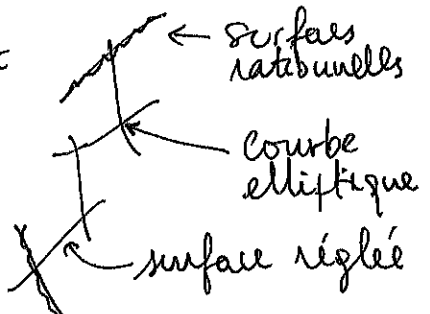 surfaces
rationnelles
courbe
elliptique
surface réglée